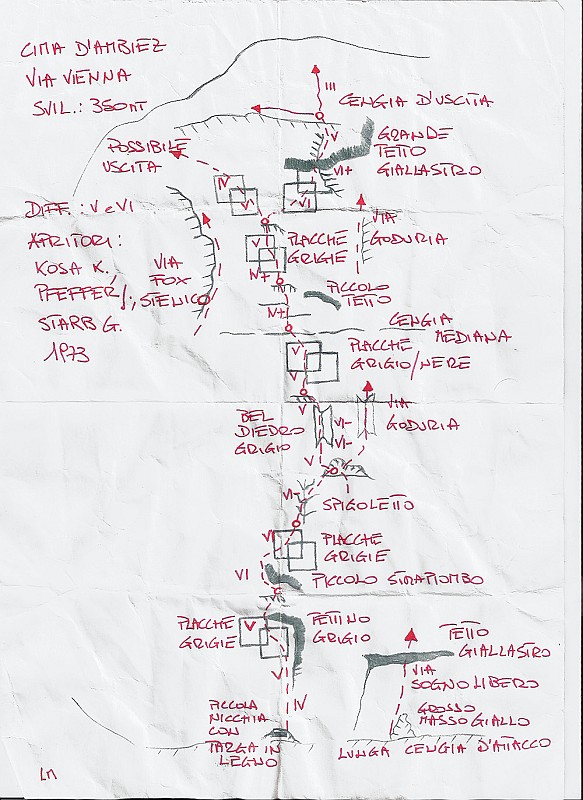 CIMA D'AMBIEZ
VIA VIENNA
SVIL.: 350MT
III
CENGIA D'USCITA
POSSIBILE
USCITA
V
GRANDE
TETTO
GIALLASTRO
VI+
IV
V
VI
DIFF.: V e VI
APRITORI:
KOSA K.,
PFEFFER J.,
STARB G.
1973
VIA
FOX
STENICO
VIA
GODURIA
V
PLACCHE
GRIGIE
IV+
PICCOLO
TETTO
IV+
CENGIA
MEDIANA
V
PLACCHE
GRIGIO/NERE
V
BEL
DIEDRO
GRIGIO
VI-
VI-
VIA
GODURIA
V
VI-
SPIGOLETTO
VI
PLACCHE
GRIGIE
VI
PICCOLO STRAPIOMBO
PLACCHE
GRIGIE
V
TETTINO
GRIGIO
V
IV
PICCOLA
NICCHIA
CON
TARGA IN
LEGNO
TETTO
GIALLASTRO
VIA
SOGNO LIBERO
GROSSO
MASSO GIALLO
LUNGA CENGIA D'ATTACCO